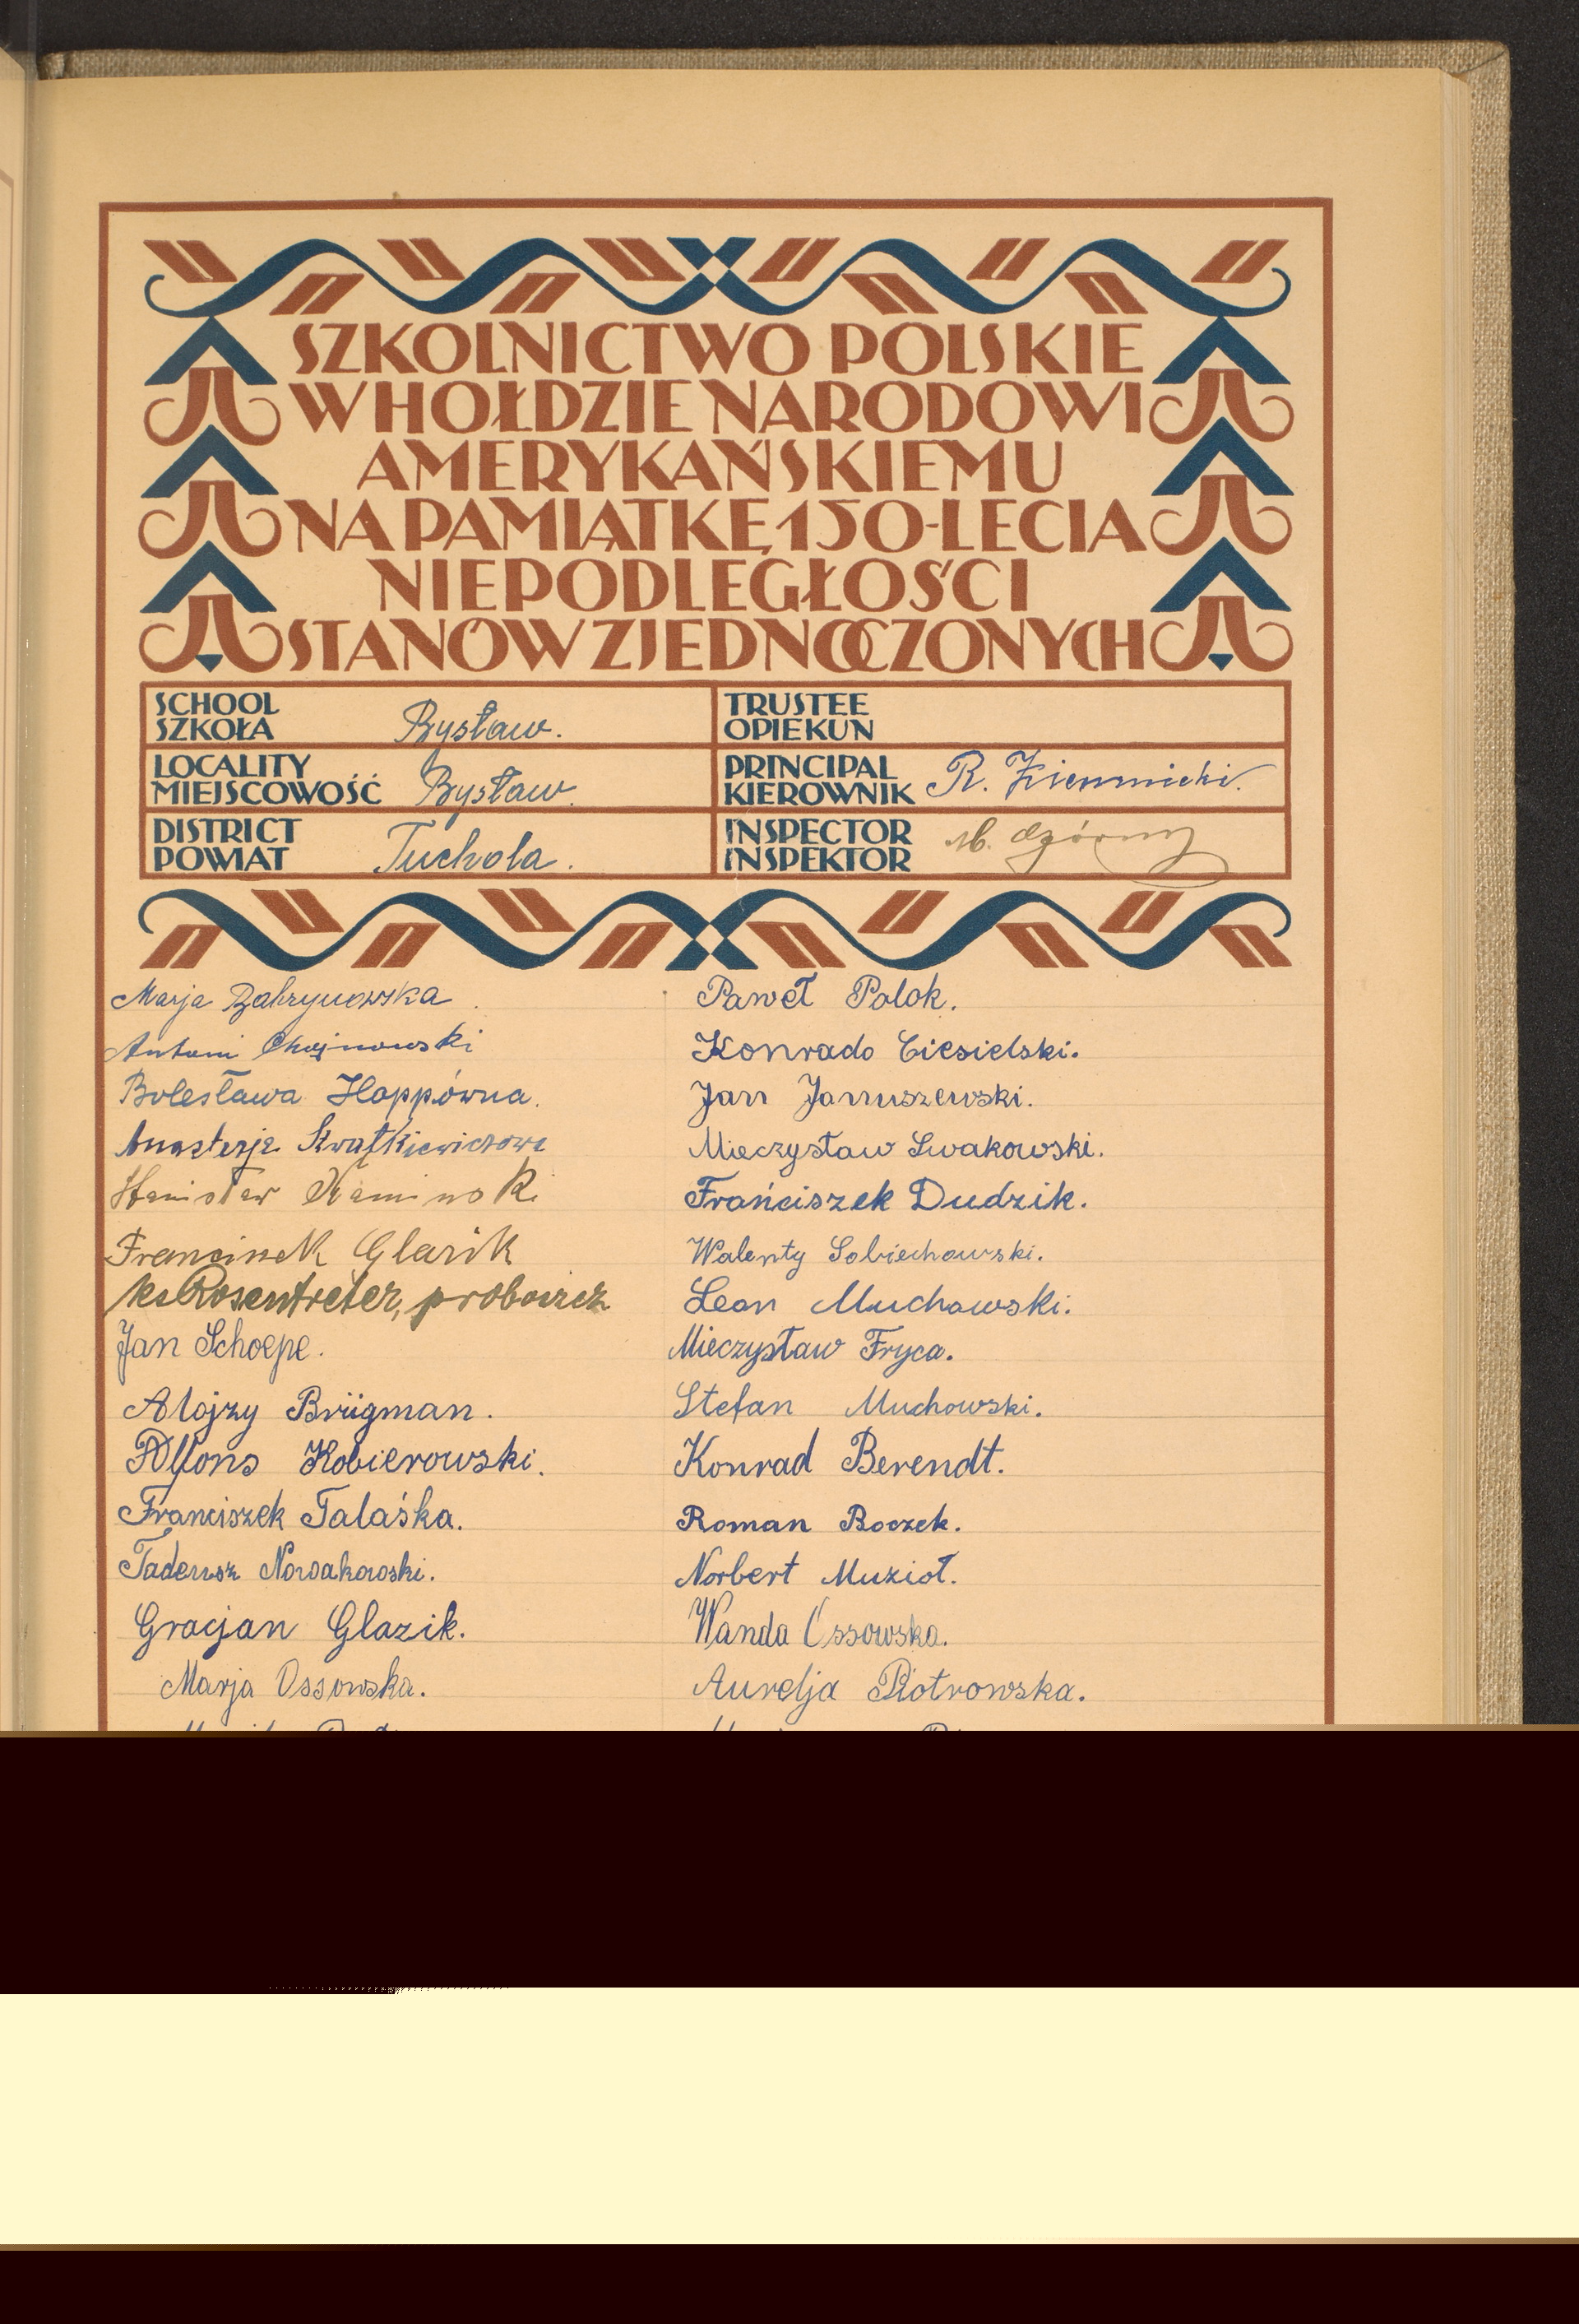 SZKOLNICTWO POLSKIE
W HOŁDZIE NARODOWI
AMERYKAŃSKIEMU
NA PAMIĄTKĘ 150-LECIA
NIEPODLEGŁOŚCI
STANÓW ZJEDNOCZONYCH
SCHOOL
SZKOŁA Bysław.
TRUSTEE
OPIEKUN
LOCALITY
MIEJSCOWOŚĆ Bysław.
PRINCIPAL
KIEROWNIK R.
DISTRICT
POWIAT Tuchola.
INSPECTOR
INSPEKTOR M. Ogórny
Marja
Antoni Chojnowski
Bolesława Hoppówna.
Anastazja Kwatkiewiczowa
Stanisław Kaminski
Franciszek Glazik
ks Rosentreter, proboszcz
Jan Schoepe.
Alojzy Brügman.
Alfons Kobierowski.
Franciszek Talaśka.
Tadeusz Nowakowski.
Gracjan Glazik.
Marja Ossowska.
Paweł Polok.
Konrado Ciesielski.
Jan Januszewski.
Mieczysław Swakowski.
Frańciszek Dudzik.
Walenty Sobiechowski.
Leon Muchowski.
Mieczysław Fryca.
Stefan Muchowski.
Konrad Berendt.
Roman Boczek.
Norbert Muzioł.
Wanda Ossowska.
Aurelja Piotrowska.